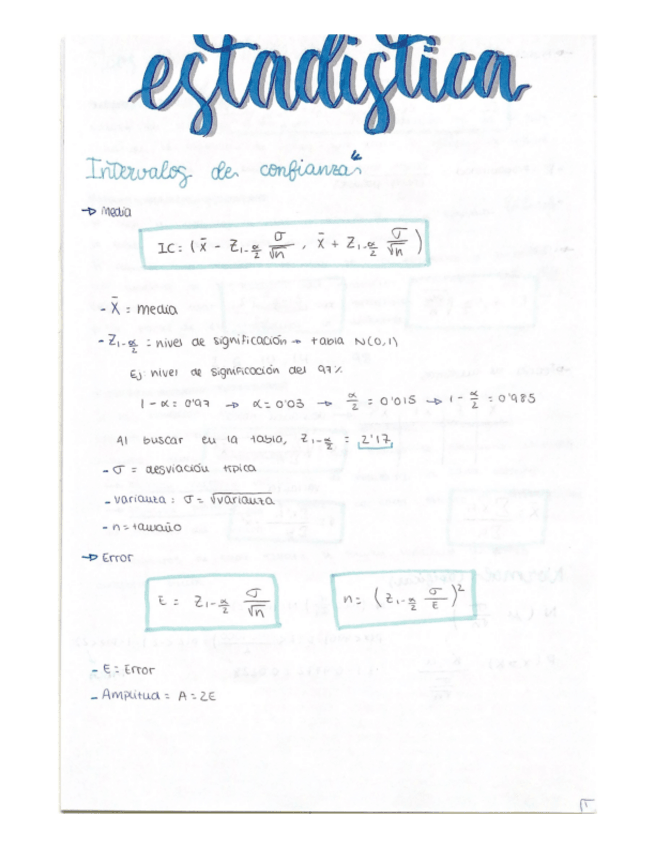 estadística
Intervalos de confianza
→ Media
IC: ( x̄ - Z₁₋α/₂ σ/√n , x̄ + Z₁₋α/₂ σ/√n )
- X̄ = media
- Z₁₋α/₂ : nivel de significación → tabla N(0,1)
Ej: nivel de significación del 97%
1-α = 0'97 → α = 0'03 → α/2 = 0'015 → 1 - α/2 = 0'985
Al buscar en la tabla, Z₁₋α/₂ = 2'17
- σ = desviación típica
- varianza : σ = √varianza
- n = tamaño
→ Error
E = Z₁₋α/₂ σ/√n
n = (Z₁₋α/₂ σ/E)²
- E = Error
- Amplitud = A = 2E
1